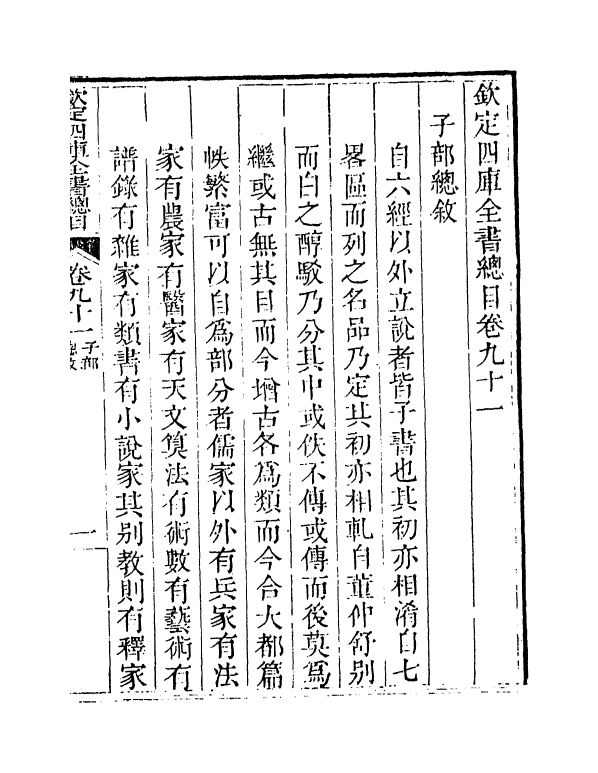 欽定四庫全書總目卷九十一
子部總敘
自六經以外立說者皆子書也其初亦相淆自七
畧區而列之名品乃定其初亦相軋自董仲舒別
而白之醇駁乃分其中或佚不傳或傳而後莫爲
繼或古無其目而今增古各爲類而今合大都篇
帙繁富可以自爲部分者儒家以外有兵家有法
家有農家有醫家有天文算法有術數有藝術有
譜錄有雜家有類書有小說家其別教則有釋家
欽定四庫全書總目
卷九十一
子部
總敘
一